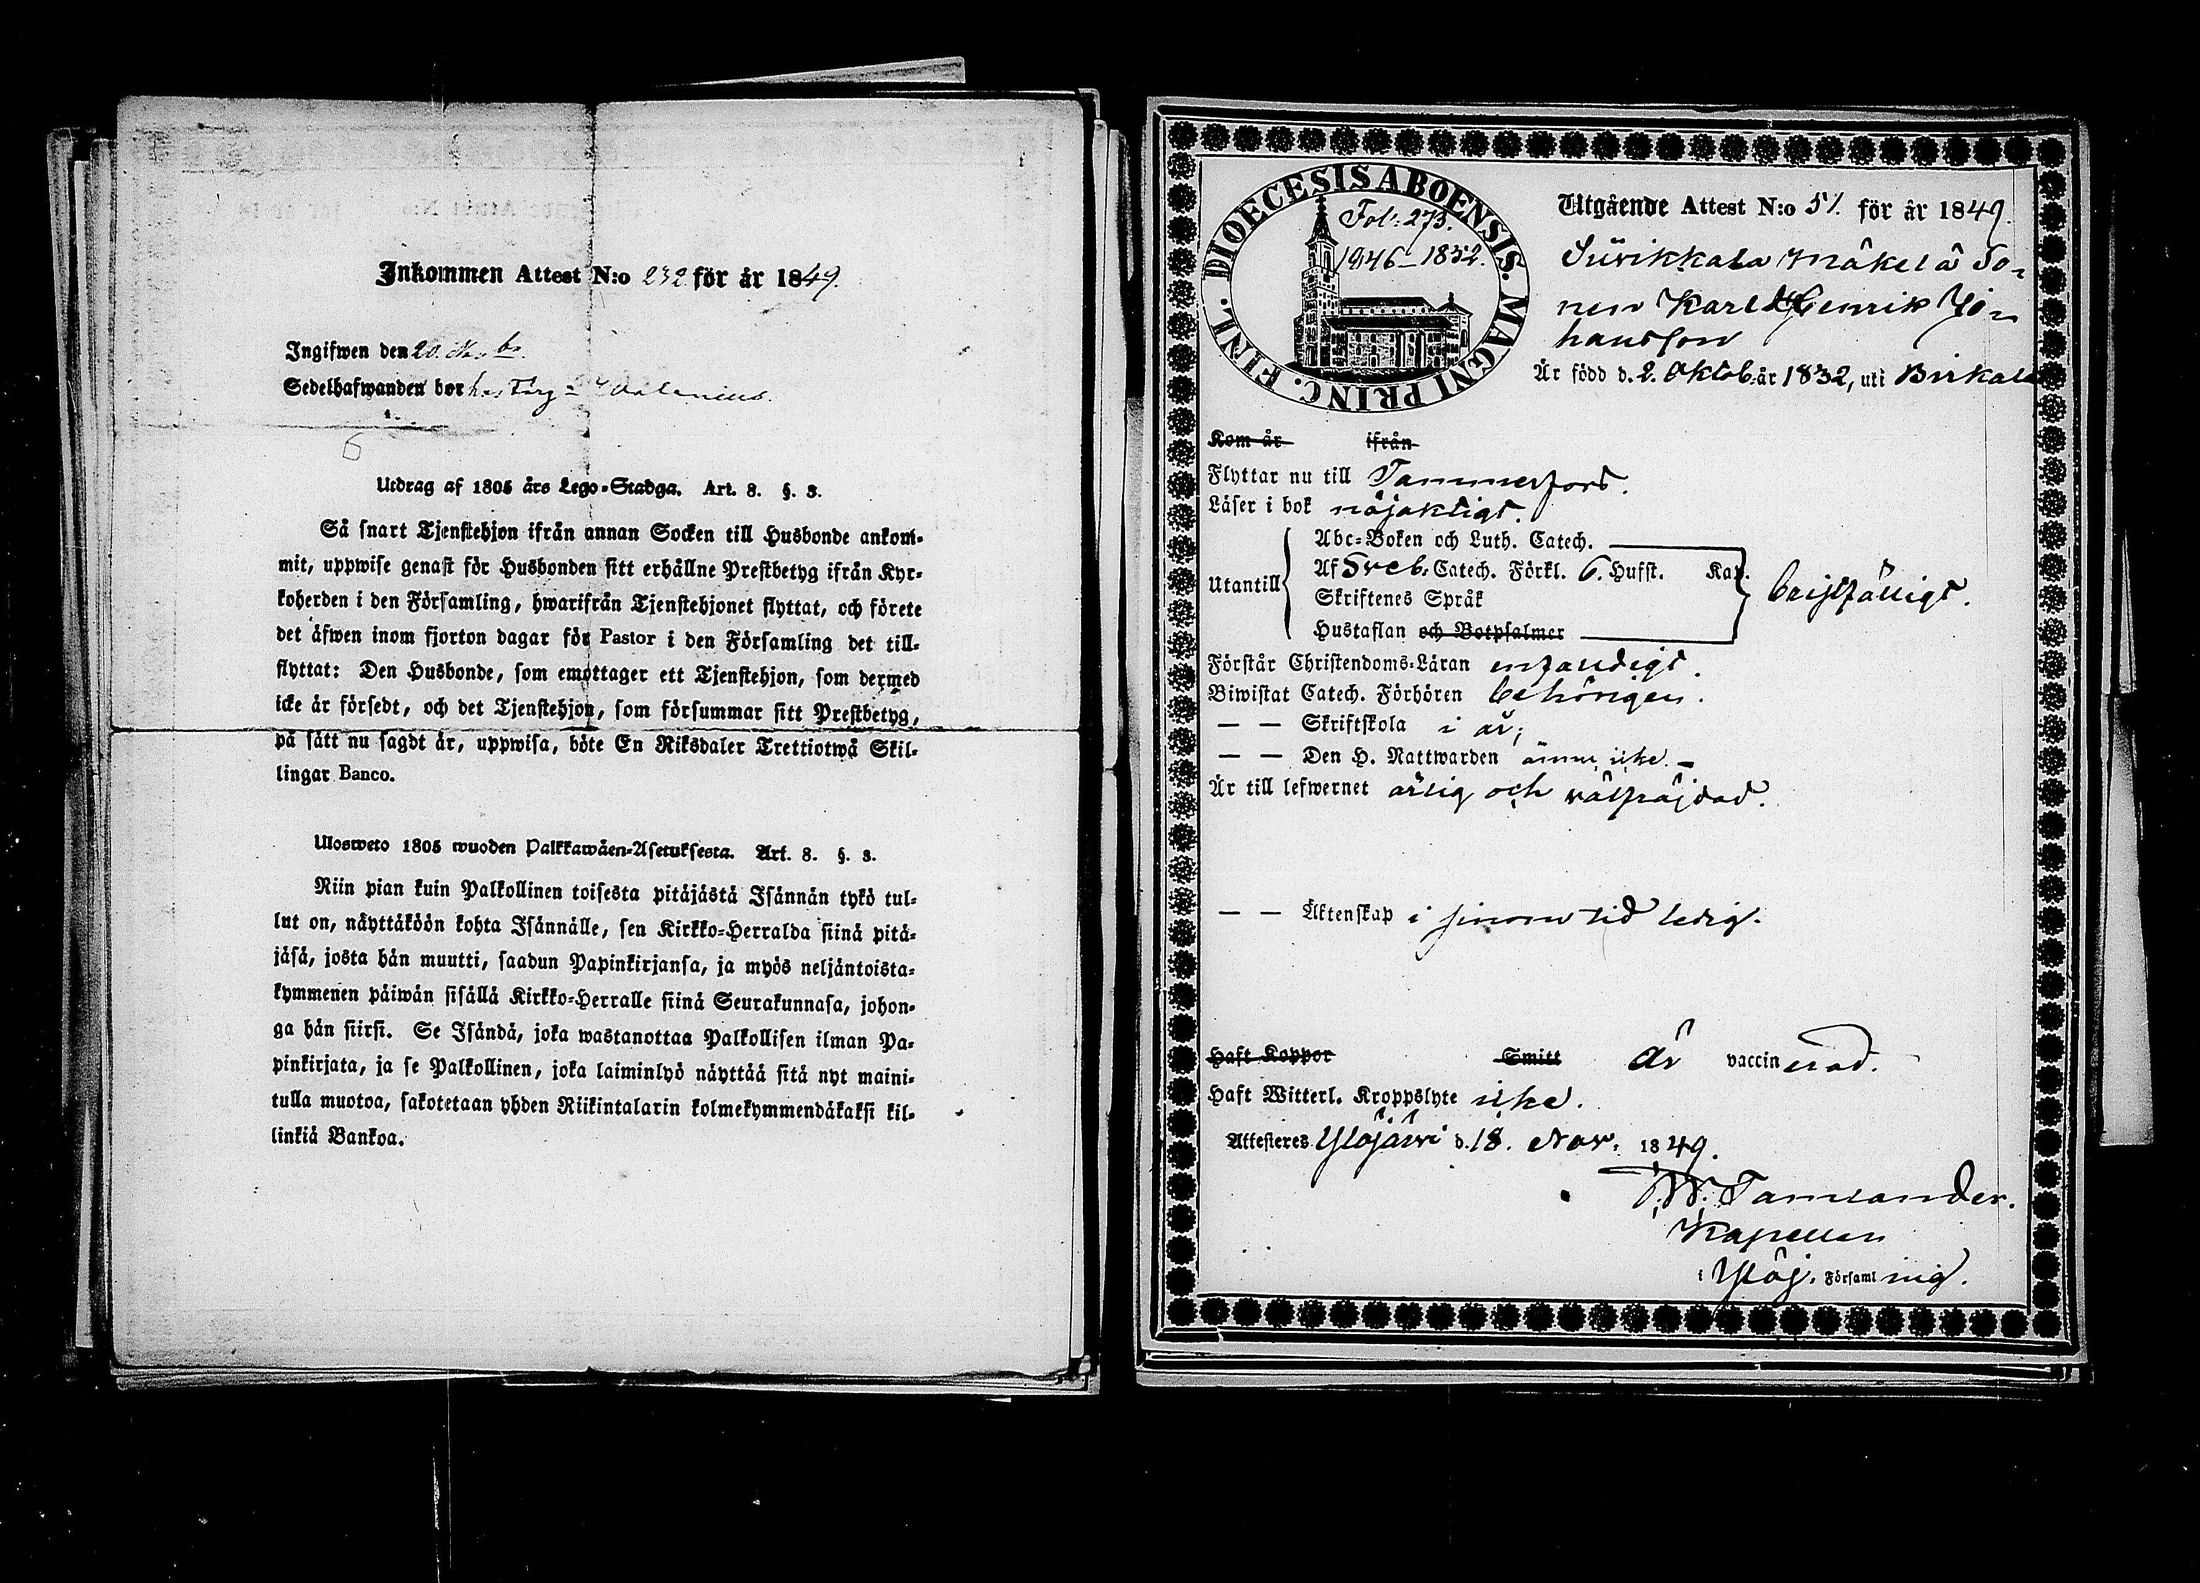 Inkommen Attest N:o 232 för år 1849.
Ingifwen den 20. Novbr.
Sedelhafwanden bor hos Färg= Walenius.
Utdrag af 1805 års Lego=Stadga. Art. 8. §. 3.
Så snart Tjenstehjon ifrån annan Socken till Husbonde ankom-
mit, uppwise genast för Husbonden sitt erhållne Prestbetyg ifrån Kyr-
koherden i den Församling, hwarifrån Tjenstehjonet flyttat, och förete
det äfwen inom fjorton dagar för Pastor i den Församling det till-
flyttat: Den Husbonde, som emottager ett Tjenstehjon, som dermed
icke är försedt, och det Tjenstehjon, som försummar sitt Prestbetyg,
på sätt nu sagdt är, uppwisa, böte En Riksdaler Trettiotwå Skil-
lingar Banco.
Ulosweto 1805 wuoden Palkkawäen-Asetuksesta. Art. 8. §. 3.
Niin pian kuin Palkollinen toisesta pitäjästä Isännän tykö tul-
lut on, näyttäköön kohta Isännälle, sen Kirkko=Herralda siinä pitä-
jäsä, josta hän muutti, saadun Papinkirjansa, ja myös neljäntoista-
kymmenen päiwän sisällä Kirkko=Herralle siinä Seurakunnasa, johon-
ga hän siirsi. Se Isändä, joka wastanottaa Palkollisen ilman Pa-
pinkirjata, ja se Palkollinen, joka laiminlyö näyttää sitä nyt maini-
tulla muotoa, sakotetaan yhden Riikintalarin kolmekymmendäkaksi kil-
linkiä Bankoa.
DIOECESIS ABOENSIS. MAGNI PRINC. FINL.
Fol: 273.
1846-1852.
Utgående Attest N:o 51. för år 1849.
Siivikkala Mäkelä So-
nen Karl Henrik Jo-
hansson
Är född d. 2. Oktob. år 1832, uti Birkala
Kom år ifrån
Flyttar nu till Tammerfors.
Läser i bok nöjaktigt.
Utantill
Abc=Boken och Luth. Catech.
Af Sveb. Catech. Förkl. 6. Hufst. Kap.
Skriftenes Språk
Hustaflan och Botpsalmer
bristfälligt.
Förstår Christendoms=Läran enfaldigt.
Biwistat Catech. Förhören behörigen.
— — Skriftskola i år;
— — Den H. Nattwarden ännu icke.
Är till lefwernet ärlig och välfräjdad.
— — Äktenskap i sinom tid ledig.
Haft Koppor Smitt är vaccinerad.
Haft Witterl. Kroppslyte icke.
Attesteres Ylöjärvi d. 18. Nov. 1849.
Kapellan
i Ylöj. Församling.